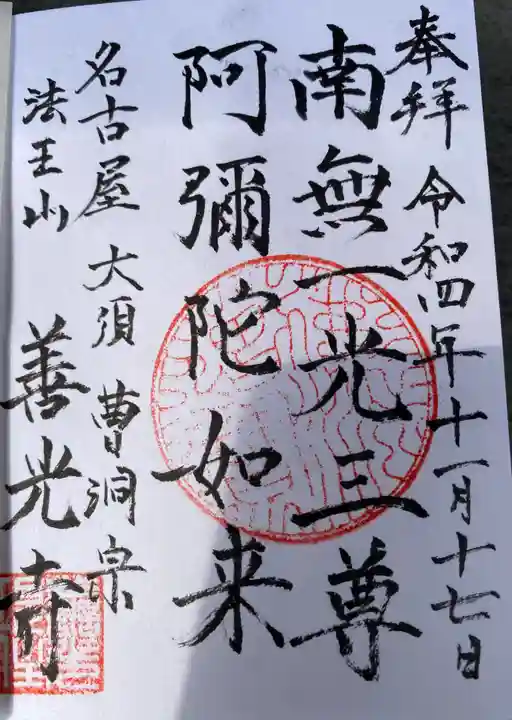 奉拝 令和四年十一月十七日
南無一光三尊
阿彌陀如来
名古屋 大須 曹洞宗
法王山 善光寺